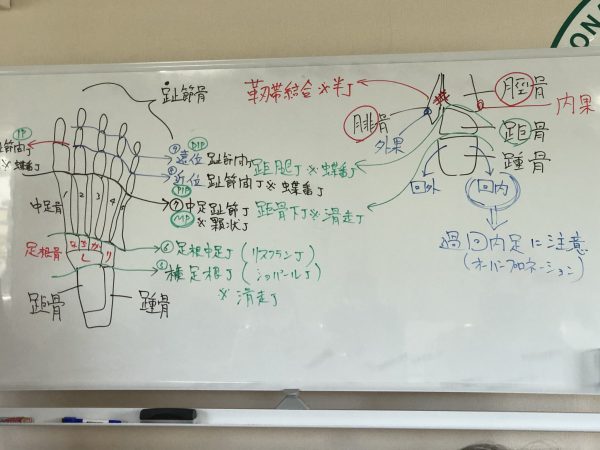 趾節骨
IP
趾節間J
※蝶番J
中足骨
1 2 3 4 5
足根骨
な さ か
し り
距骨
踵骨
DIP
⑨遠位趾節間J
⑧近位趾節間J ※蝶番J
PIP
⑦中足趾節J
MP
※顆状J
⑥足根中足J (リスフランJ)
⑤横足根J (ショパールJ)
※滑走J
靭帯結合 ※半J
脛骨
内果
腓骨
外果
距骨
踵骨
距腿J ※蝶番J
距骨下J ※滑走J
回外
回内
過回内足に注意
(オーバープロネーション)
ON